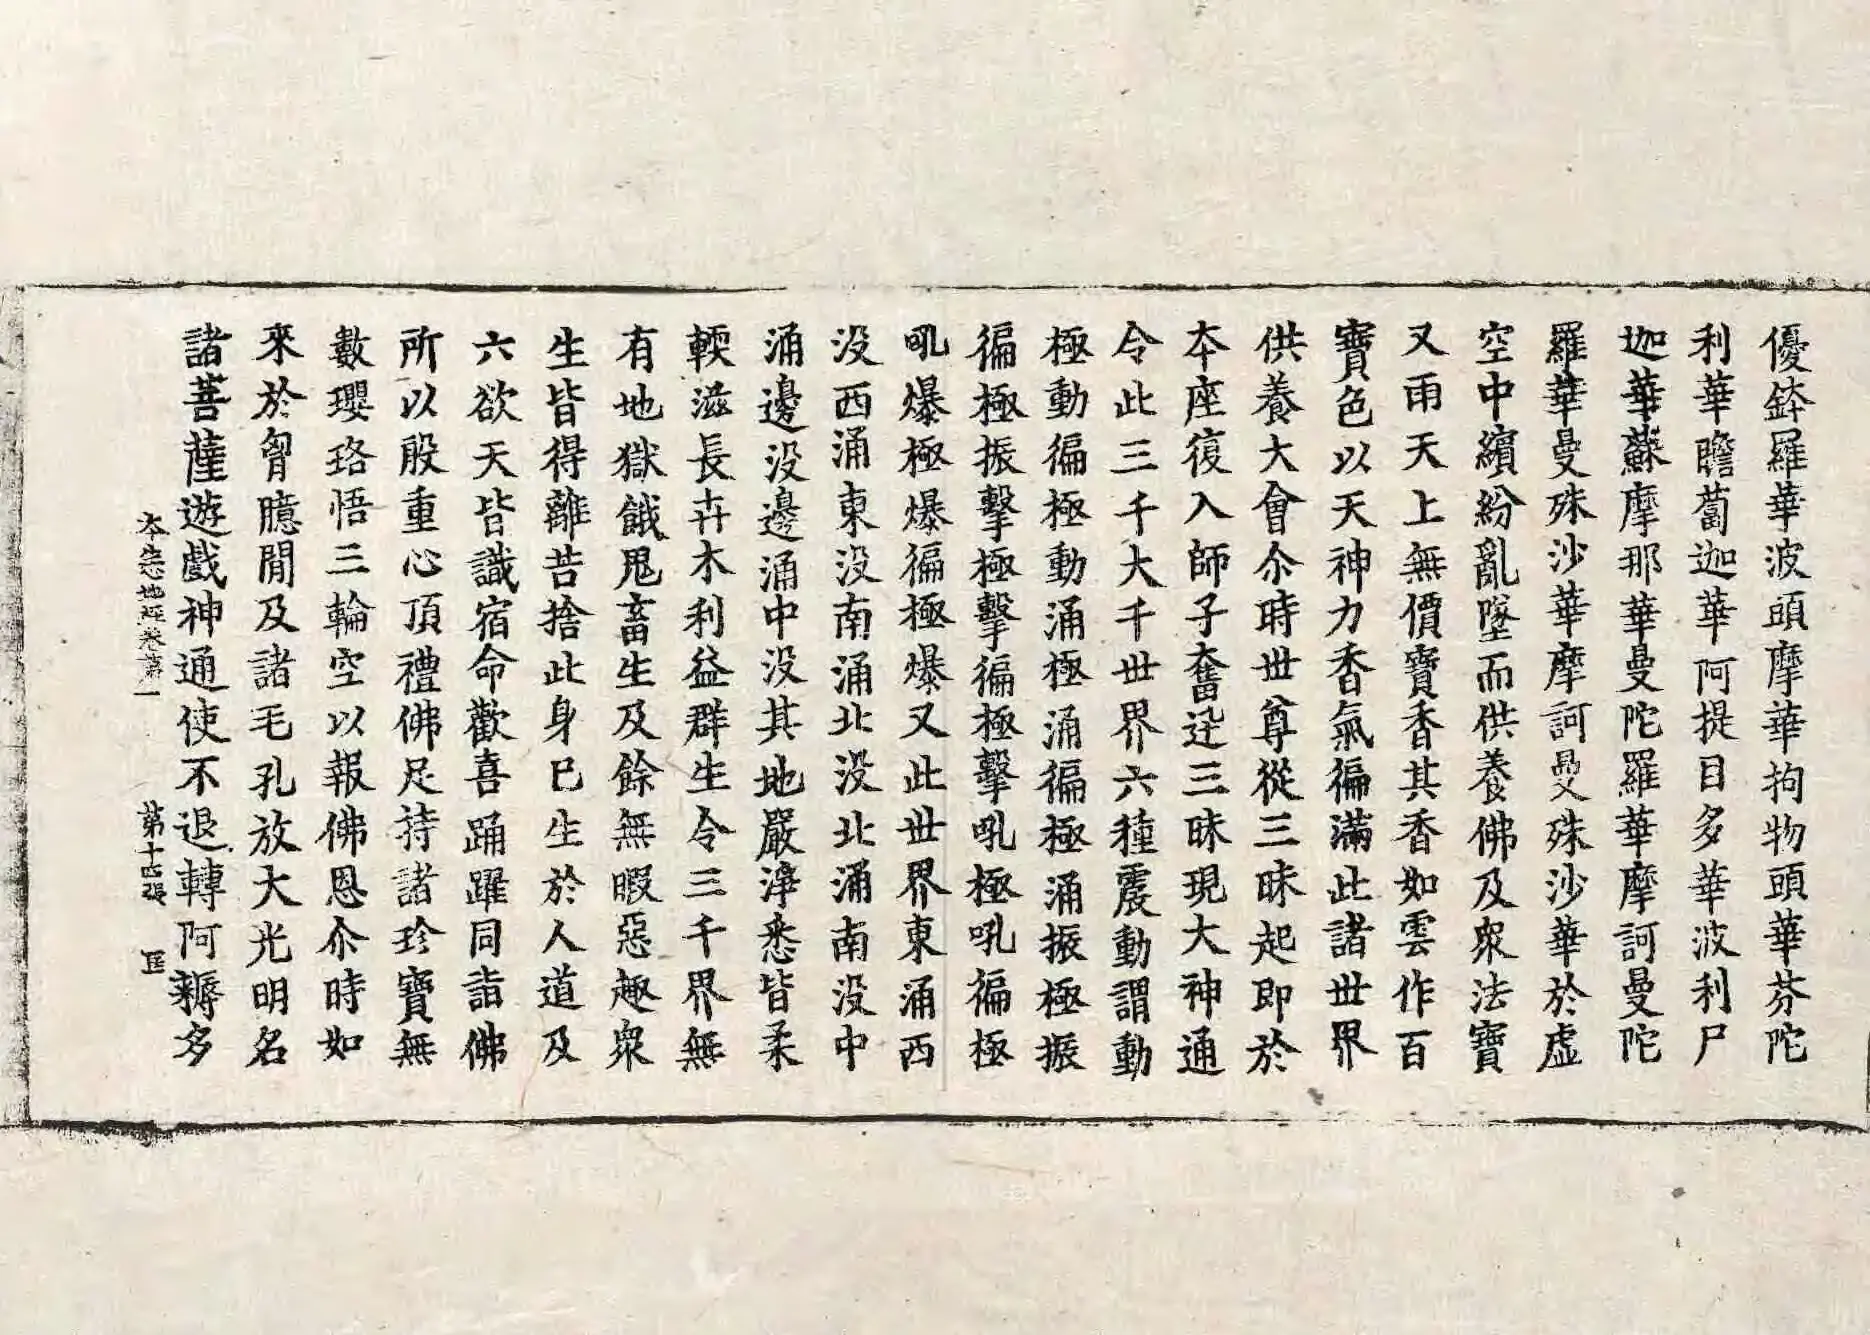 優鉢羅華波頭摩華拘物頭華芬陀
利華瞻蔔迦華阿提目多華波利尸
迦華蘇摩那華曼陀羅華摩訶曼陀
羅華曼殊沙華摩訶曼殊沙華於虛
空中繽紛亂墜而供養佛及衆法寶
又雨天上無價寶香其香如雲作百
寶色以天神力香氣徧滿此諸世界
供養大會尒時世尊從三昧起即於
本座復入師子奮迅三昧現大神通
令此三千大千世界六種震動謂動
極動徧極動涌極涌徧極涌振極振
徧極振擊極擊徧極擊吼極吼徧極
吼爆極爆徧極爆又此世界東涌西
没西涌東没南涌北没北涌南没中
涌邊没邊涌中没其地嚴淨悉皆柔
輭滋長卉木利益群生令三千界無
有地獄餓鬼畜生及餘無暇惡趣衆
生皆得離苦捨此身已生於人道及
六欲天皆識宿命歡喜踊躍同詣佛
所以殷重心頂禮佛足持諸珍寶無
數瓔珞悟三輪空以報佛恩尒時如
來於胷臆間及諸毛孔放大光明名
諸菩薩遊戲神通使不退轉阿耨多
本生心地經卷第一 第十四張 匡